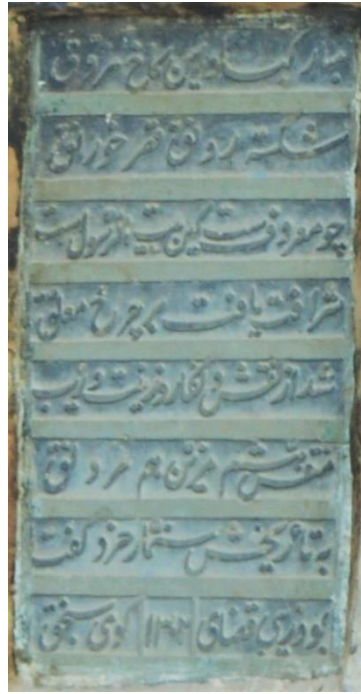 مبارک این کاخ
شکسته رونق قصر خورنق
چو معروفست کین بیت الرسول است
شرافت یافت بر چرخ معلق
شد از نقش و نگار و زینت و زیب
مقرنس هم مزین هم مرونق
به تاریخش سنمار خرد گفت
بود زیب قضای کوی سنجق